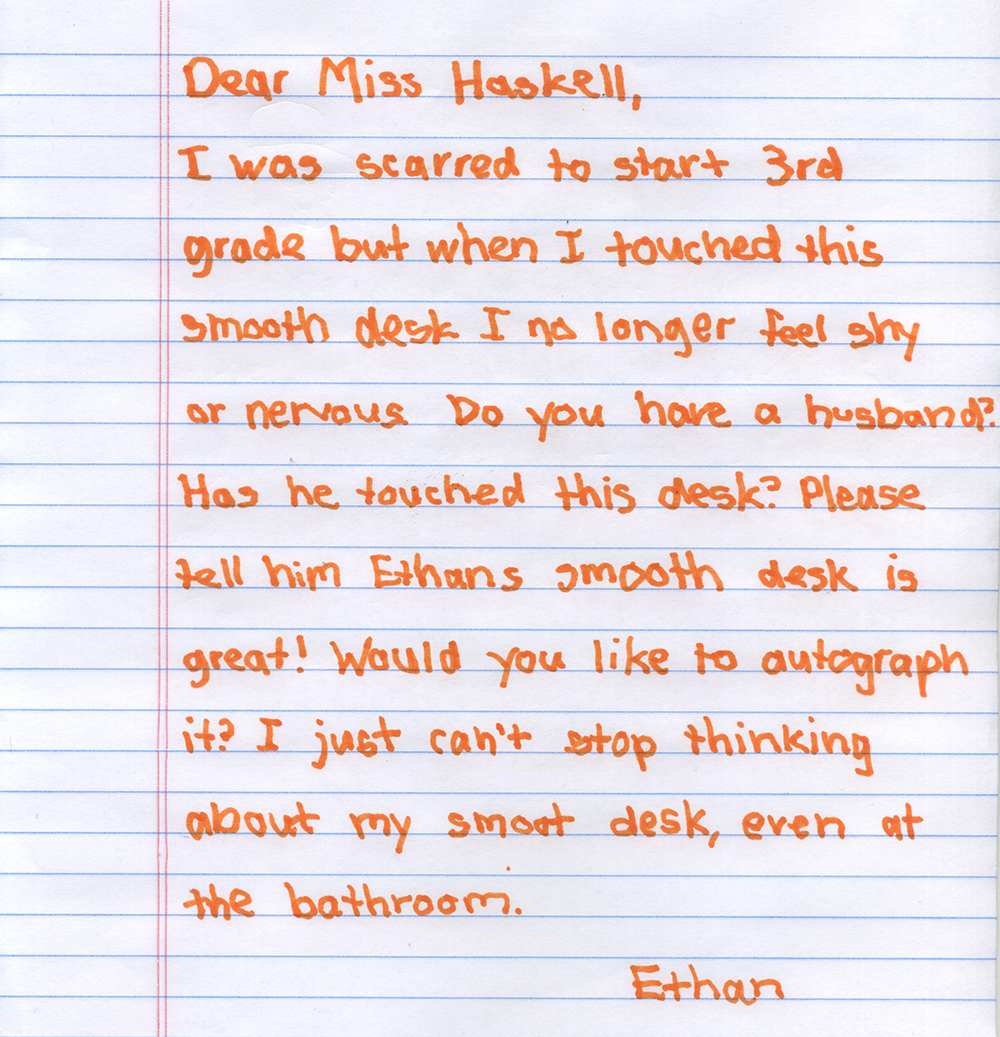 Dear Miss Haskell,
I was scarred to start 3rd
grade but when I touched this
smooth desk I no longer feel shy
or nervous Do you have a husband?
Has he touched this desk? Please
tell him Ethans smooth desk is
great! Would you like to autograph
it? I just can't stop thinking
about my smoot desk, even at
the bathroom.
Ethan